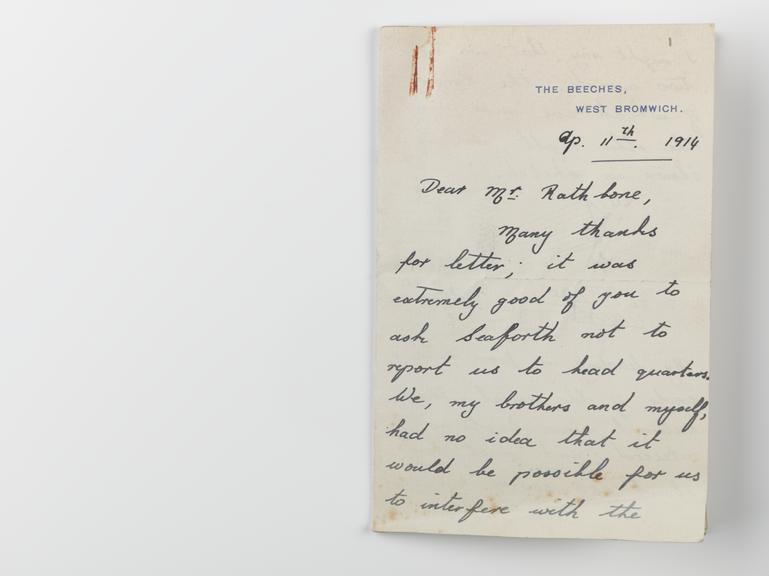 THE BEECHES,
WEST BROMWICH.
Ap. 11th. 1914
Dear Mr. Rathbone,
Many thanks
for letter; it was
extremely good of you to
ask Seaforth not to
report us to head quarters.
We, my brothers and myself,
had no idea that it
would be possible for us
to interfere with the